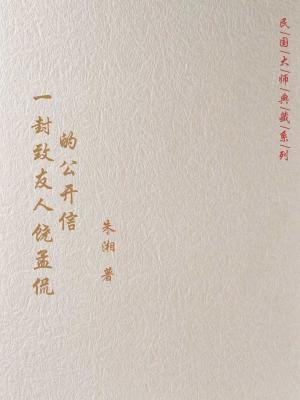 民|国|大|师|典|藏|系|列
一封致友人饶孟侃
的公开信
朱湘 著